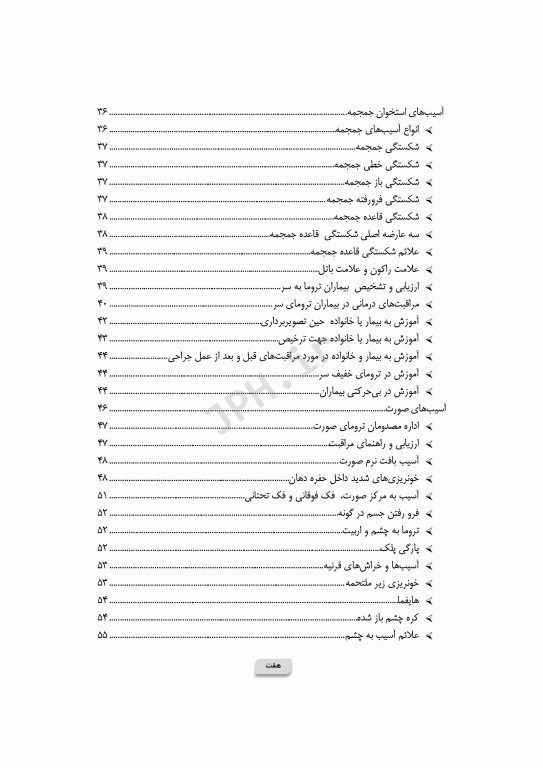 آسیب‌های استخوان جمجمه ۳۶
انواع آسیب‌های جمجمه ۳۶
شکستگی جمجمه ۳۷
شکستگی خطی جمجمه ۳۷
شکستگی باز جمجمه ۳۷
شکستگی فرورفته جمجمه ۳۷
شکستگی قاعده جمجمه ۳۸
سه عارضه اصلی شکستگی قاعده جمجمه ۳۸
علائم شکستگی قاعده جمجمه ۳۹
علامت راکون و علامت باتل ۳۹
ارزیابی و تشخیص بیماران تروما به سر ۳۹
مراقبت‌های درمانی در بیماران ترومای سر ۴۰
آموزش به بیمار یا خانواده حین تصویربرداری ۴۲
آموزش به بیمار یا خانواده جهت ترخیص ۴۳
آموزش به بیمار و خانواده در مورد مراقبت‌های قبل و بعد از عمل جراحی ۴۴
آموزش در ترومای خفیف سر ۴۴
آموزش در بی‌حرکتی بیماران ۴۴
آسیب‌های صورت ۴۶
اداره مصدومان ترومای صورت ۴۷
ارزیابی و راهنمای مراقبت ۴۷
آسیب بافت نرم صورت ۴۸
خونریزی‌های شدید داخل حفره دهان ۴۸
آسیب به مرکز صورت، فک فوقانی و فک تحتانی ۵۱
فرو رفتن جسم در گونه ۵۲
تروما به چشم و اربیت ۵۲
پارگی پلک ۵۲
آسیب‌ها و خراش‌های قرنیه ۵۳
خونریزی زیر ملتحمه ۵۳
هایفما ۵۴
کره چشم باز شده ۵۴
علائم آسیب به چشم ۵۵
هفت
JPH.ir